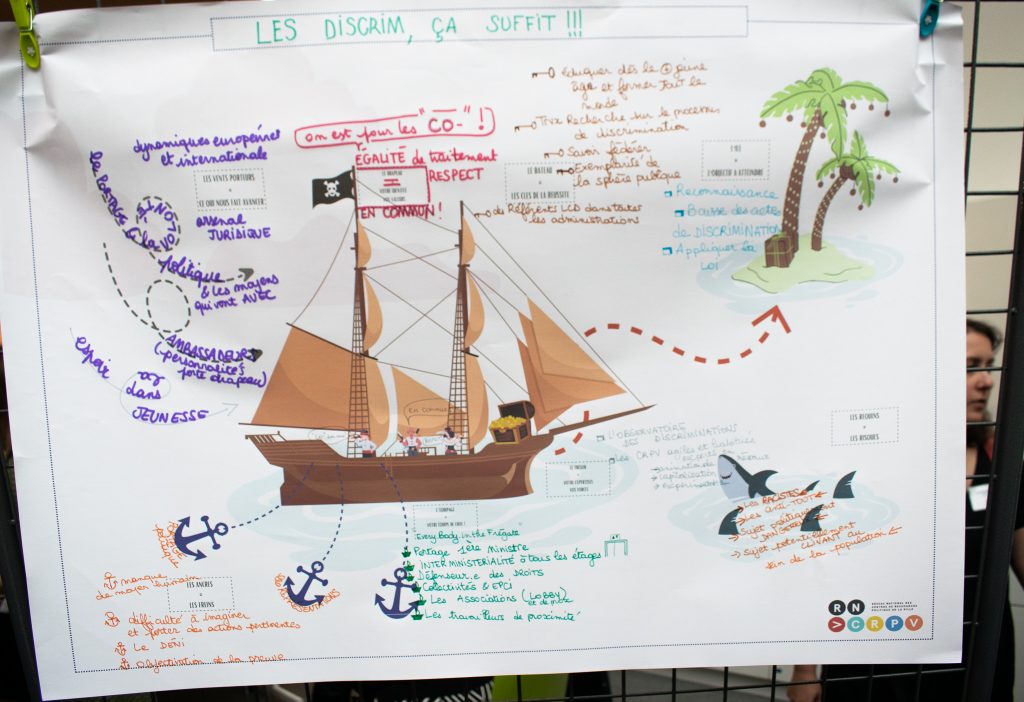 LES DISCRIM, ÇA SUFFIT !!!
on est pour les "CO-" !
ÉGALITÉ de traitement
RESPECT
LE DRAPEAU
=
VOTRE IDENTITÉ
VOS VALEURS
EN COMMUN !
dynamiques européennes
et internationale
LES VENTS PORTEURS
=
CE QUI NOUS FAIT AVANCER
arsenal
JURIDIQUE
le PORTAGE & la
VOLONTÉ
politique
& les moyens
qui vont AVEC
AMBASSADEURS
(personnalités
porte drapeau)
espoir
dans
JEUNESSE
éduquer dès le + jeune
âge et former tout le
monde
Recherche sur le processus
de discrimination
Savoir fédérer
Exemplarité de
la sphère publique
LE BATEAU
=
LES CLES DE LA REUSSITE
de Référents LCD dans toutes
les administrations
L'ILE
=
L'OBJECTIF A ATTEINDRE
Reconnaissance
Baisse des actes
de DISCRIMINATION
Appliquer la
LOI
En commun
L'OBSERVATOIRE
DES DISCRIMINATIONS
Les CRPV
LE TRESOR
=
VOTRE EXPERTISE
VOS FORCES
LES REQUINS
=
LES RISQUES
Les RACISTES
Les ANTI-TOUT
Sujet politiquement
DANGEREUX
Sujet potentiellement
CLIVANT au
sein de la population
L'EQUIPAGE
=
VOTRE EQUIPE DE CHOC !
EveryBody in the Frégate
Portage 1ère Ministre
INTERMINISTÉRIALITÉ à tous les étages
Défenseur.e des DROITS
Collectivités & EPCI
Les Associations (LOBBY)
Les travailleurs de proximité
REPRÉSENTATIONS
LES ANCRES
=
LES FREINS
manque
de moyen humain
difficulté à imaginer
et porter des actions pertinentes
Le DÉNI
objectivation de la preuve
RN
CRPV
RESEAU NATIONAL DES
CENTRES DE RESSOURCES
POLITIQUE DE LA VILLE